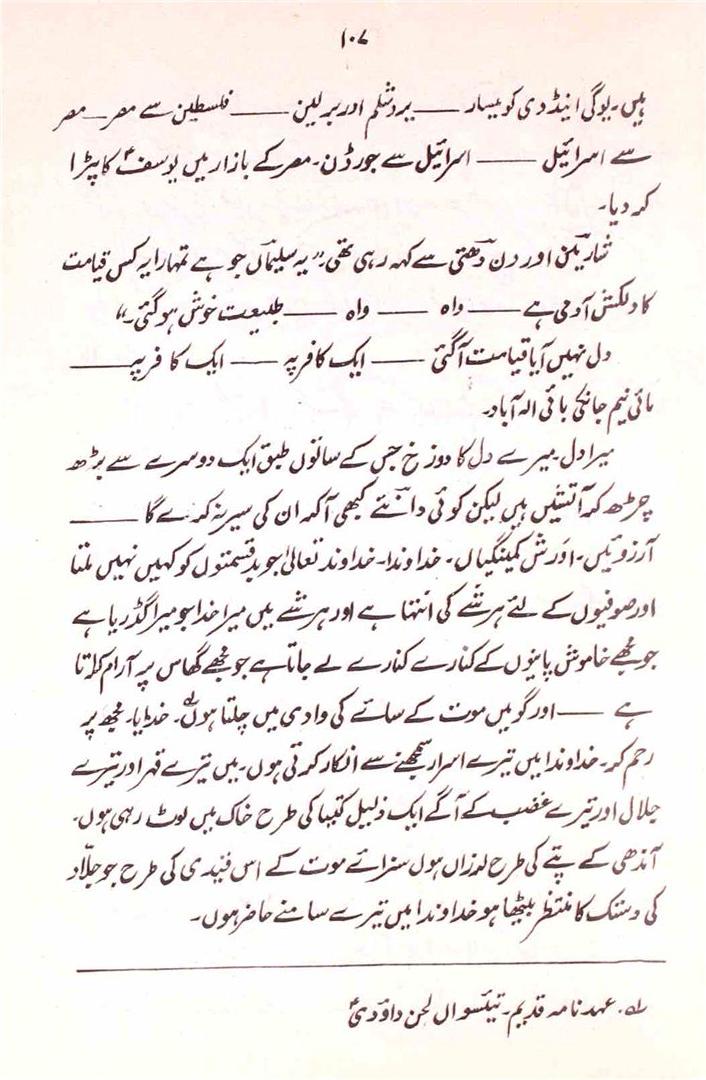 ۱۰۷
ہیں۔ یوگی اینڈ دی کومیسار —— یروشلم اور برلین —— فلسطین سے مصر — مصر
سے اسرائیل —— اسرائیل سے جورڈن۔ مصر کے بازار میں یوسفؑ کا پڑا
کر دیا۔
اور دن دھتی سے کہہ رہی تھی۔ "یہ سلیماں جو ہے تمہارا یہ کس قیامت
کا دلکش آدمی ہے —— واہ —— واہ —— طبیعت خوش ہو گئی۔"
دل نہیں آیا قیامت آ گئی —— ایک کافر پہ —— ایک کافر پہ ——
مائی نیم جانکی بائی الہ آباد۔
میرا دل۔ میرے دل کا دوزخ جس کے ساتوں طبق ایک دوسرے سے بڑھ
چڑھ کر آتشیں ہیں لیکن کوئی دانتے کبھی آ کر ان کی سیر نہ کرے گا ——
آرزوئیں۔ اورش کمینگیاں۔ خداوندا۔ خداوند تعالیٰ جو بدقسمتوں کو کہیں نہیں ملتا
اور صوفیوں کے لئے ہر شے کی انتہا ہے اور ہر شے میں میرا خدا جو میرا گڈریا ہے
جو مجھے خاموش پانیوں کے کنارے کنارے لے جاتا ہے جو مجھے گھاس پہ آرام کراتا
ہے —— اور گو میں موت کے سائے کی وادی میں چلتا ہوں لہ۔ خدایا۔ مجھ پر
رحم کر۔ خداوندا میں تیرے اسرار سمجھنے سے انکار کرتی ہوں۔ میں تیرے قہر اور تیرے
جلال اور تیرے غضب کے آگے ایک ذلیل کتیا کی طرح خاک میں لوٹ رہی ہوں۔
آندھی کے پتے کی طرح لرزاں ہوں سزائے موت کے اس قیدی کی طرح جو جلّاد
کی دستک کا منتظر بیٹھا ہو خداوندا میں تیرے سامنے حاضر ہوں۔
لہ۔ عہد نامہ قدیم۔ تیئسواں لحن داؤدیؑ